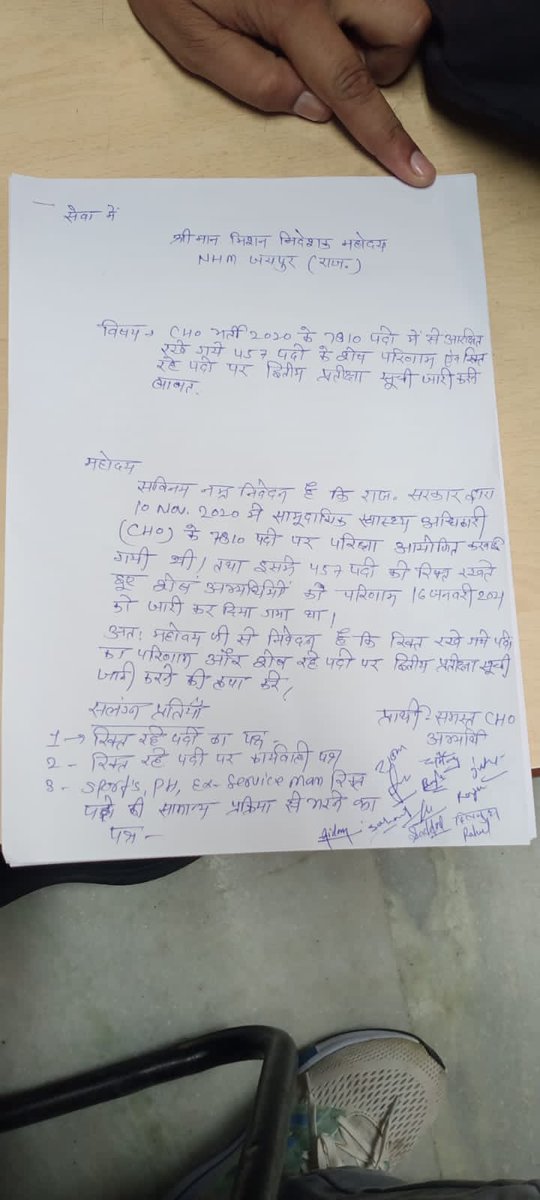 सेवा में
श्रीमान मिशन निदेशक महोदय
NHM जयपुर (राज.)
विषय → CHO भर्ती 2020 के 7810 पदो में से आरक्षित
रखे गये 457 पदो के शेष परिणाम एंव रिक्त
रहे पदो पर द्वितीय प्रतीक्षा सूची जारी करने
बाबत.
महोदय
सविनय नम्र निवेदन है कि राज. सरकार द्वारा
10 NOV. 2020 में सामुदायिक स्वास्थ्य अधिकारी
(CHO) के 7810 पदो पर परिक्षा आयोजित करवाई
गयी थी। तथा इसमें 457 पदो को रिक्त रखते
हुए शेष अभ्यर्थियों का परिणाम 16 जनवरी 2021
को जारी कर दिया गया था।
अत: महोदय जी से निवेदन है कि रिक्त रखे गये पदो
का परिणाम और शेष रहे पदो पर द्वितीय प्रतीक्षा सूची
जारी करने की कृपा करे।
सलंग्न प्रतियाँ
प्रार्थी - समस्त CHO
अभ्यर्थी
1 → रिक्त रहे पदों का पत्र
2 - रिक्त रहे पदो पर कार्यवाही पत्र
3 - Sports, PH, Ex-Service man रिक्त
पदो को सामान्य प्रक्रिया से भरने का
पत्र -
Rahul